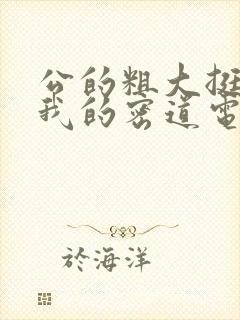 公的粗大挺
我的密道電
於海洋